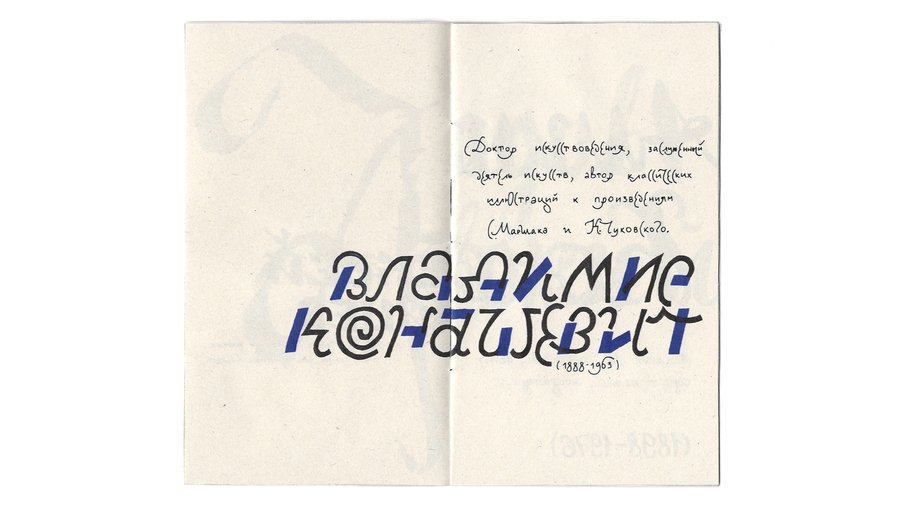 Доктор искусствоведения, заслуженный
деятель искусств, автор классических
иллюстраций к произведениям
С.Маршака и К.Чуковского.
ВЛАДИМИР
КОНАШЕВИЧ
(1888-1963)
(1898-1976)